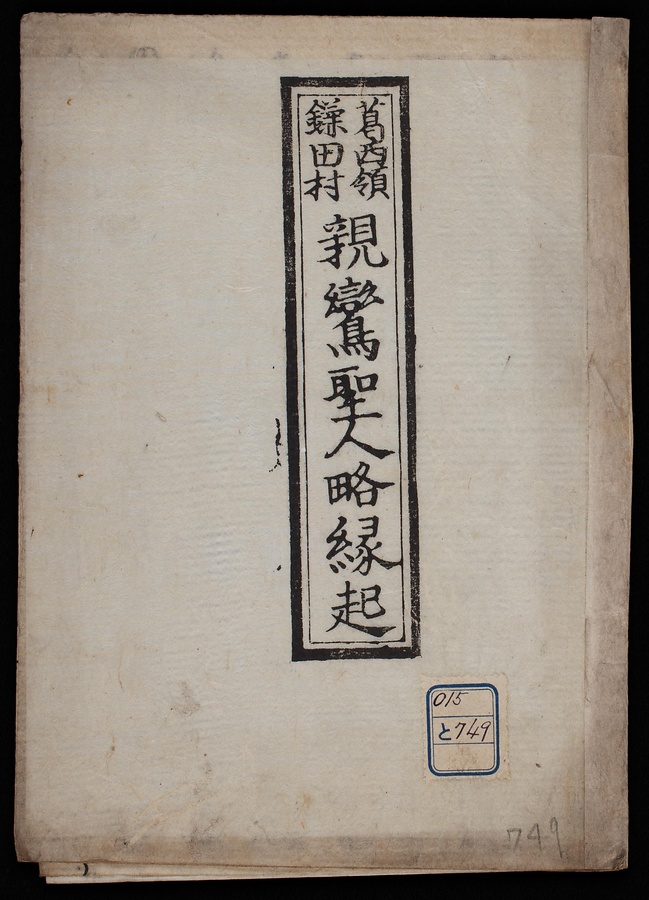 葛西領
鎌田村
親鸞聖人略縁起
015
と749
749